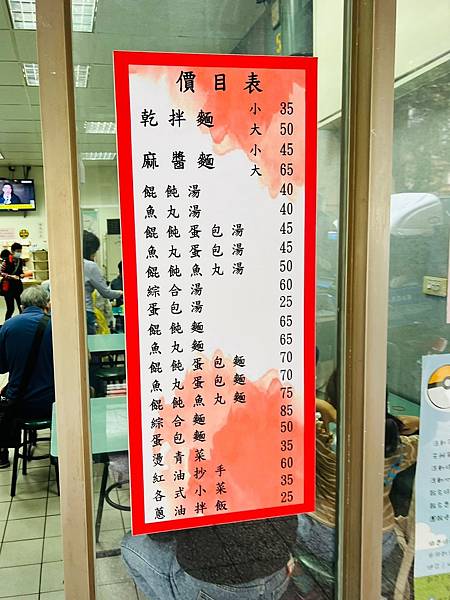 價目表
乾拌麵 小 35
大 50
麻醬麵 小 45
大 65
餛飩湯 40
魚丸湯 40
餛飩蛋包湯 45
魚丸蛋包湯 45
餛飩魚丸湯 50
綜合湯 60
蛋包湯 25
餛飩麵 65
魚丸麵 65
餛飩蛋包麵 70
魚丸蛋包麵 70
餛飩魚丸麵 75
綜合麵 85
蛋包麵 50
燙青菜 35
紅油抄手 60
各式小菜 35
蔥油拌飯 25